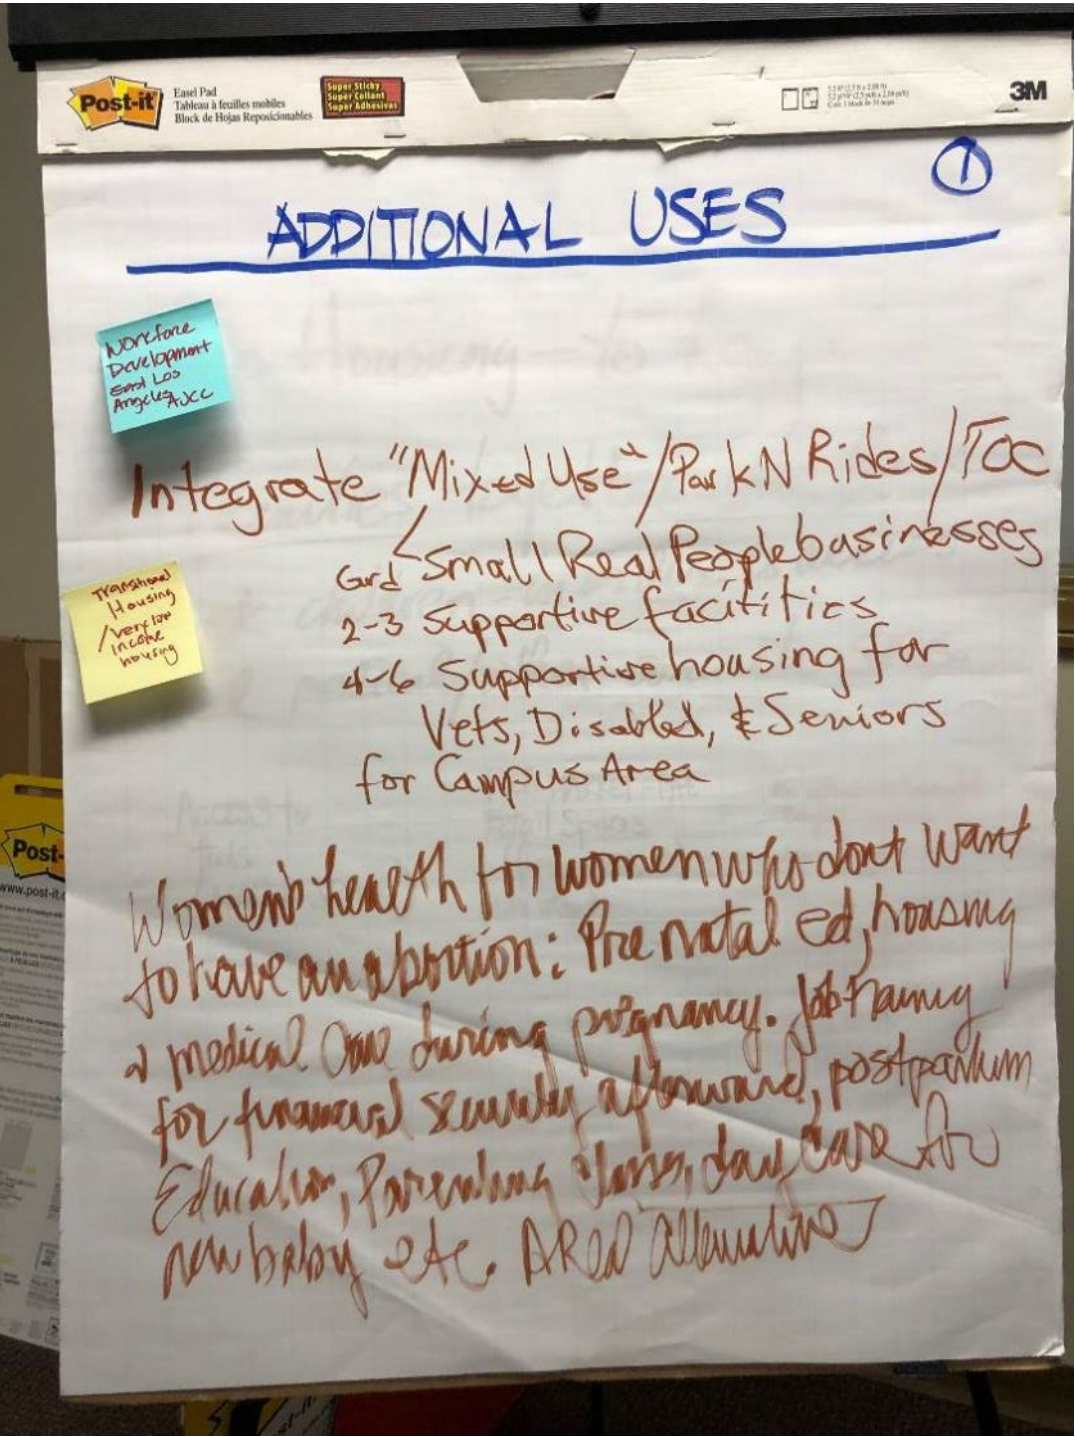 Post-it
Easel Pad
Tableau à feuilles mobiles
Block de Hojas Reposicionables
Super Sticky
Super Collant
Super Adhesivas
3M
1
ADDITIONAL USES
Workforce
Development
East Los
Angeles AJCC
Integrate "Mixed Use"/Park N Rides/TOC
Small Real People businesses
Grd
2-3 Supportive facitities
4-6 Supportive housing for
Vets, Disabled, & Seniors
for Campus Area
Transitional
Housing
/very low
income
housing
Women's health for women who dont want
to have an abortion: Prenatal ed, housing
& medical care during pregnancy. Job training
for financial security afterward, postpartum
Education, Parenting classes, day care for
new baby etc. A Real alternative
Post-
www.post-it.c